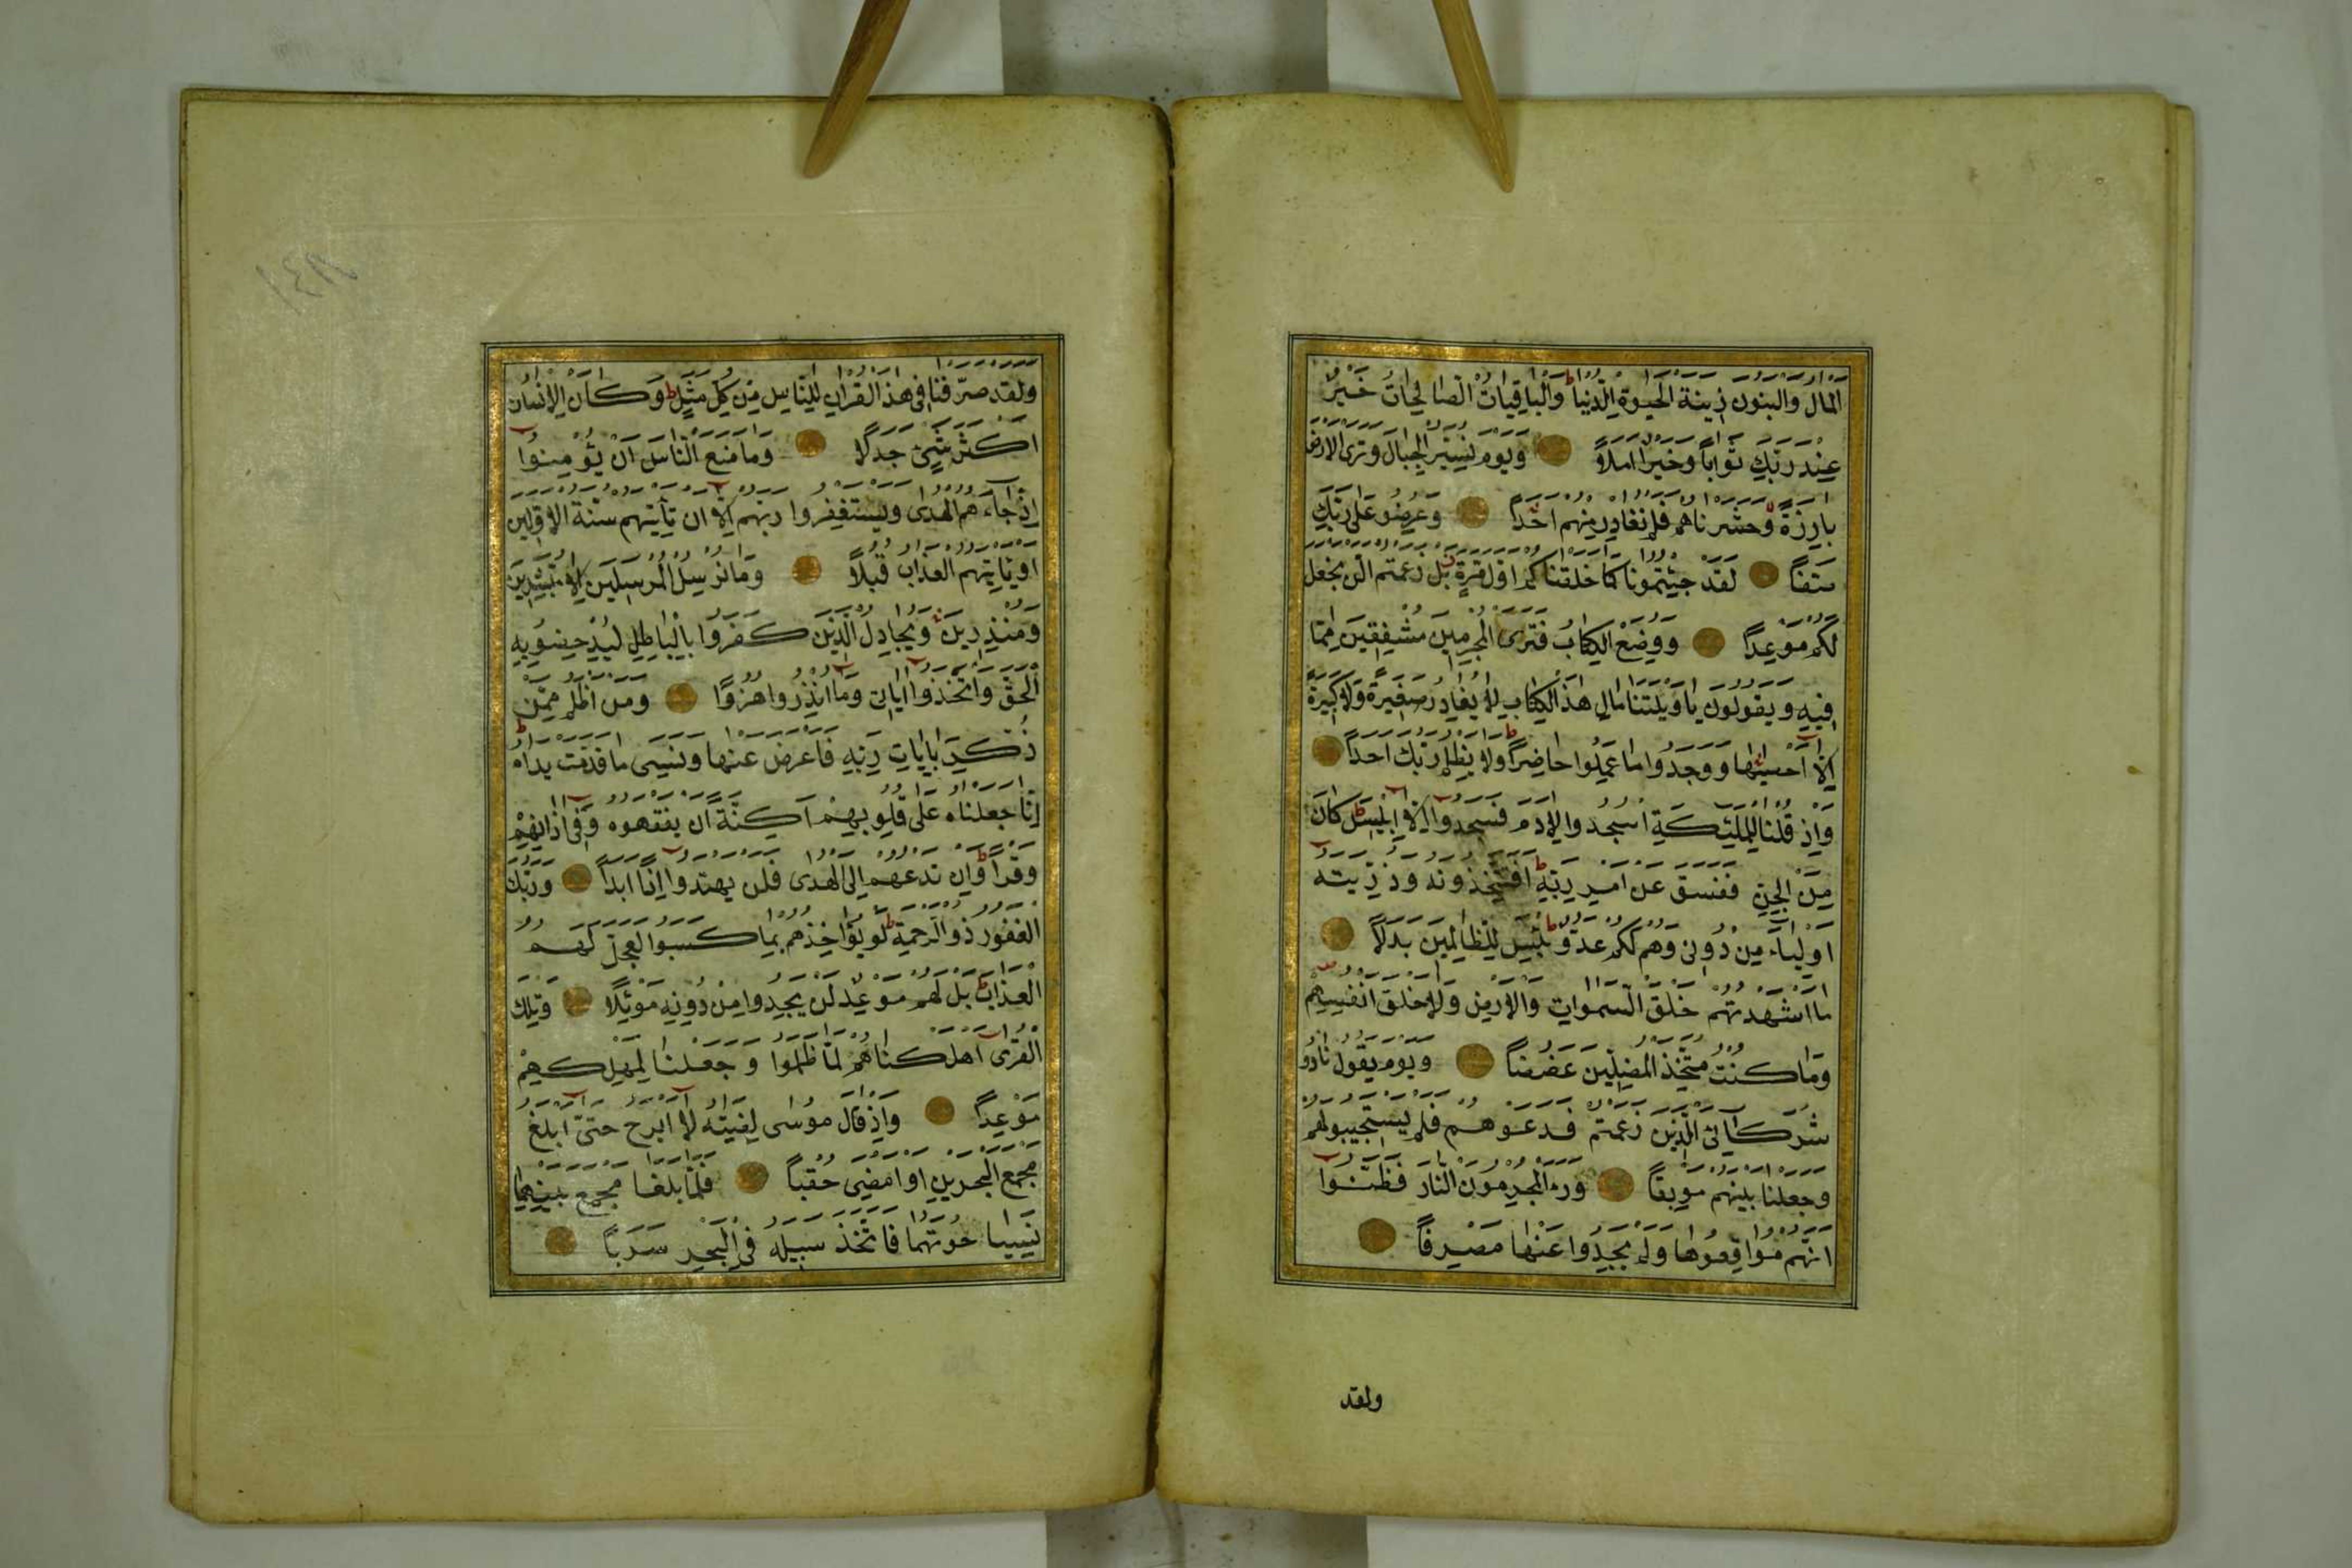 المال والبنون زينة الحيوة الدنيا والباقيات الصالحات خير
عند ربك ثوابا وخير املا ويوم نسير الجبال وترى الارض
بارزة وحشرناهم فلم نغادر منهم احدا وعرضو على ربك
صفا لقد جئتمونا كما خلقناكم اول مرة بل زعمتم الن نجعل
لكم موعدا ووضع الكتاب فترى المجرمين مشفقين مما
فيه ويقولون ياويلتنا مال هذا الكتاب لا يغادر صغيرة ولا كبيرة
الا احصيها ووجدوا ما عملوا حاضرا ولا يظلم ربك احدا
واذ قلنا للملئكة اسجدوا لادم فسجدوا الا ابليس كان
من الجن ففسق عن امر ربه افتتخذونه وذريته
اولياء من دونى وهم لكم عدو بئس للظالمين بدلا
ما اشهدتهم خلق السموات والارض ولا خلق انفسهم
وما كنت متخذ المضلين عضدا ويوم يقول نادو
شركائى الذين زعمتم فدعوهم فلم يستجيبو لهم
وجعلنا بينهم موبقا ورء المجرمون النار فظنوا
انهم مواقعوها ولم يجدوا عنها مصرفا
ولقد
ولقد صرفنا فى هذا القران للناس من كل مثل وكان الانسان
اكثر شئ جدلا وما منع الناس ان يؤمنوا
اذ جاءهم الهدى ويستغفروا ربهم الا ان تأتيهم سنة الاولين
او ياتيهم العذاب قبلا وما نرسل المرسلين الا مبشرين
ومنذرين ويجادل الذين كفروا بالباطل ليدحضو به
الحق واتخذوا اياتى وما انذروا هزوا ومن اظلم ممن
ذكر بايات ربه فاعرض عنها ونسى ما قدمت يداه
انا جعلناه على قلوبهم اكنة ان يفقهوه وفى اذانهم
وقرا وان تدعهم الى الهدى فلن يهتدوا اذا ابدا وربك
الغفور ذو الرحمة لو يؤاخذهم بما كسبوا لعجل لهم
العذاب بل لهم موعد لن يجدوا من دونه موئلا وتلك
القرى اهلكناهم لما ظلموا وجعلنا لمهلكهم
موعدا واذ قال موسى لفتيه لا ابرح حتى ابلغ
مجمع البحرين او امضى حقبا فلما بلغا مجمع بينهما
نسيا حوتهما فاتخذ سبيله فى البحر سربا